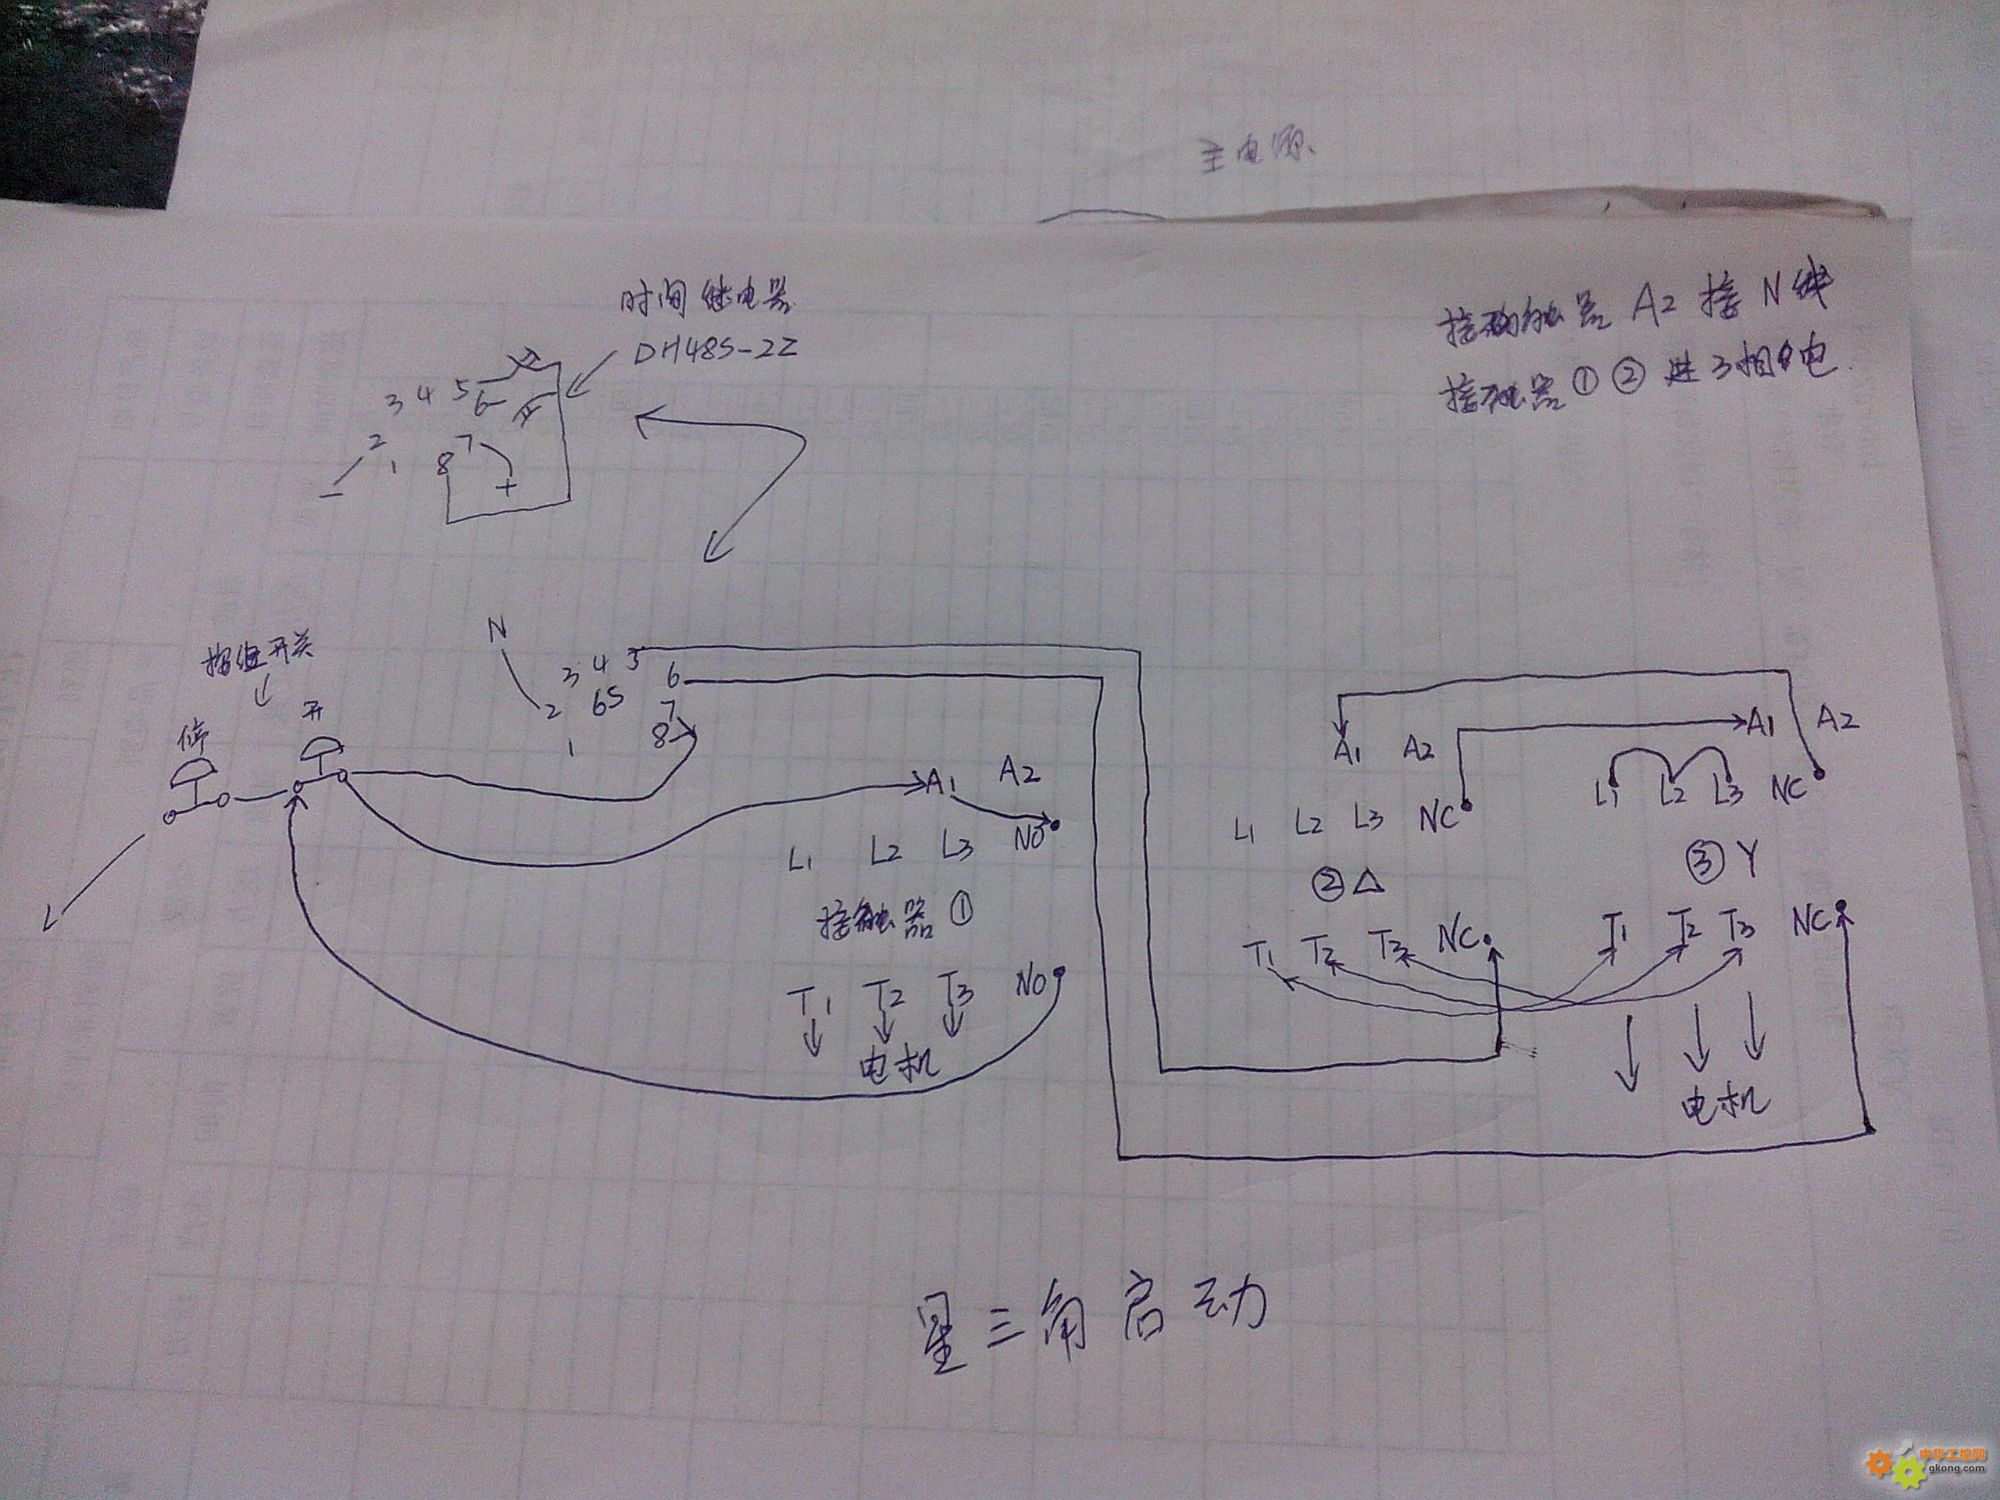 主电源
时间继电器
DH48S-2Z
3 4 5
6
2
1 8 7
- +
接触器 A2 接 N线
接触器 ① ② 进3相电
N
3 4 5
6
2 6S
7
1 8
开关
停 开
A1 A2
L1 L2 L3 NO
接触器 ①
T1 T2 T3 NO
电机
A1 A2
L1 L2 L3 NC
② △
T1 T2 T3 NC
A1 A2
L1 L2 L3 NC
③ Y
T1 T2 T3 NC
电机
星三角启动
中华工控网
gkong.com